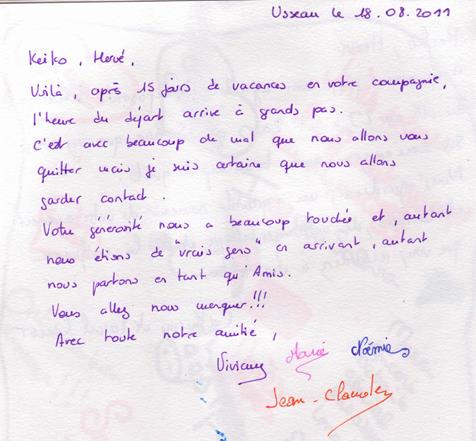 Usseau le 18.08.2011
Keiko, Hervé,
Voilà, après 15 jours de vacances en votre compagnie,
l'heure du départ arrive à grands pas.
C'est avec beaucoup de mal que nous allons vous
quitter mais je suis certaine que nous allons
garder contact.
Votre générosité nous a beaucoup touchés et, autant
nous étions de "vrais gens" en arrivant, autant
nous partons en tant qu'Amis.
Vous allez nous manquer!!!
Avec toute notre amitié,
Viviane Marie Noémie
Jean-Claude